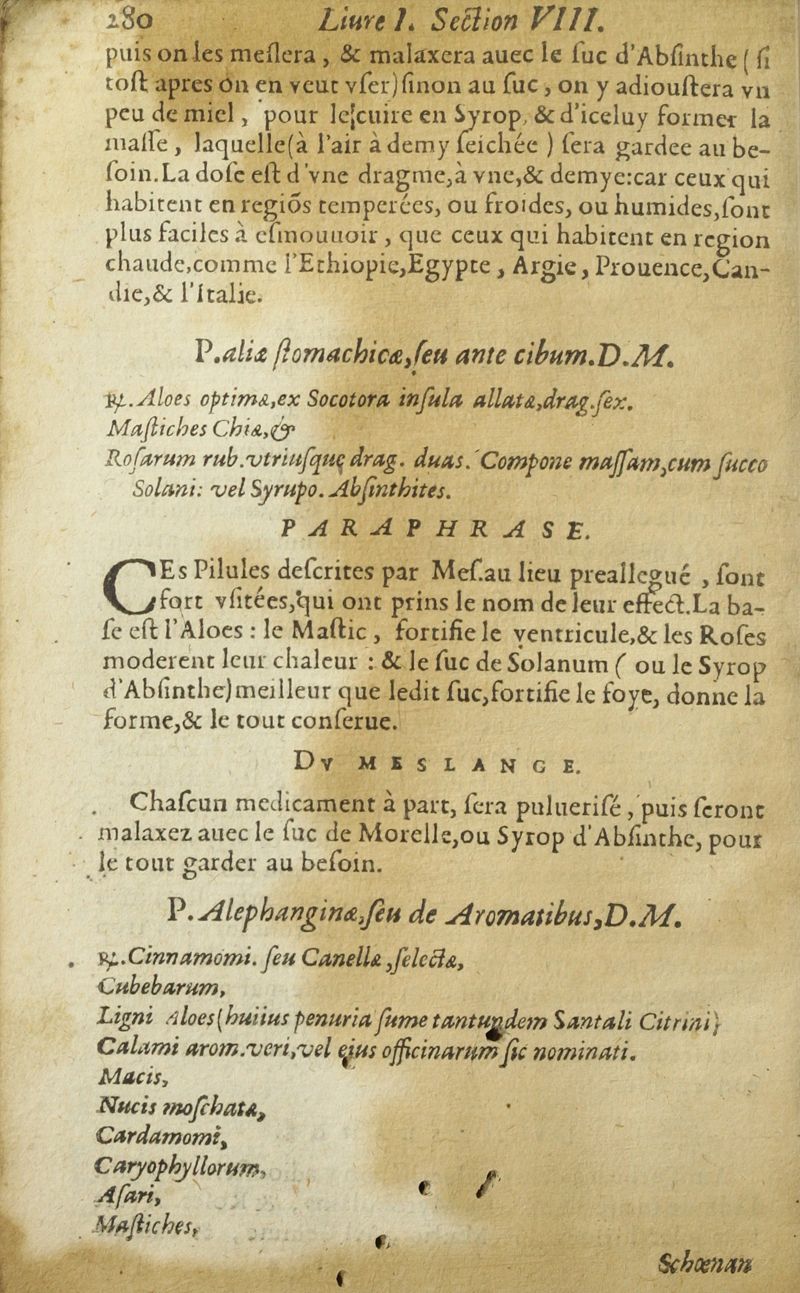 280 Liure I. Section VIII.
puis on les meſlera, & malaxera auec le ſuc d'Abſinthe (ſi
toſt apres on en veut vſer) ſinon au ſuc, on y adiouſtera vn
peu de miel, pour le cuire en Syrop, & d'iceluy former la
maſſe, laquelle (à l'air à demy ſeichée) ſera gardee au be-
ſoin. La doſe eſt d'vne dragme, à vne, & demye: car ceux qui
habitent en regiõs temperées, ou froides, ou humides, ſont
plus faciles à eſmouuoir, que ceux qui habitent en region
chaude, comme l'Ethiopie, Egypte, Argie, Prouence, Can-
die, & l'Italie.
P. aliæ ſtomachicæ, ſeu ante cibum. D. M.
℞. Aloes optimæ, ex Socotora inſula allatæ, drag. ſex.
Maſtiches Chiæ, &
Roſarum rub. vtriuſquę drag. duas. Compone maſſam, cum ſucco
Solani: vel Syrupo. Abſinthites.
PARAPHRASE.
CEs Pilules deſcrites par Meſ. au lieu preallegué, ſont
fort vſitées, qui ont prins le nom de leur effect. La ba-
ſe eſt l'Aloes: le Maſtic, fortifie le ventricule, & les Roſes
moderent leur chaleur: & le ſuc de Solanum (ou le Syrop
d'Abſinthe) meilleur que ledit ſuc, fortifie le foye, donne la
forme, & le tout conſerue.
DV MESLANGE.
Chaſcun medicament à part, ſera pulueriſé, puis ſeront
malaxez auec le ſuc de Morelle, ou Syrop d'Abſinthe, pour
le tout garder au beſoin.
P. Alephanginæ, ſeu de Aromatibus, D. M.
℞. Cinnamomi. ſeu Canellæ, ſelectæ,
Cubebarum,
Ligni Aloes (huiius penuria ſume tantundem Santali Citrini)
Calami arom. veri, vel ejus officinarum ſic nominati.
Macis,
Nucis moſchatæ,
Cardamomi,
Caryophyllorum,
Aſari,
Maſtiches,
Schœnan